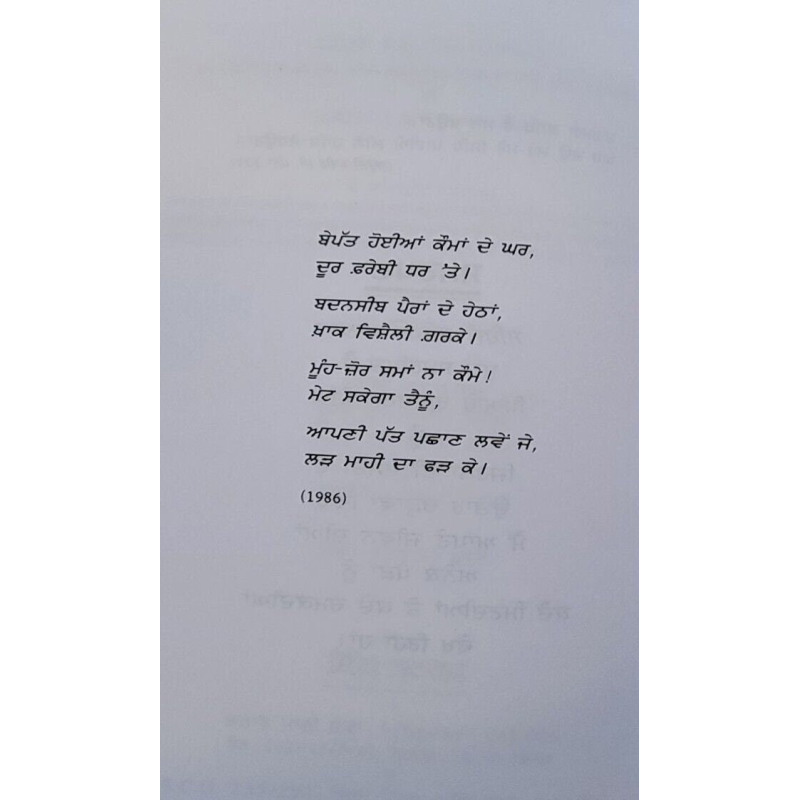 ਬੇਪੱਤ ਹੋਈਆਂ ਕੌਮਾਂ ਦੇ ਘਰ,
ਦੂਰ ਫ਼ਰੇਬੀ ਧਰ 'ਤੇ।
ਬਦਨਸੀਬ ਪੈਰਾਂ ਦੇ ਹੇਠਾਂ,
ਖ਼ਾਕ ਵਿਸ਼ੈਲੀ ਗ਼ਰਕੇ।
ਮੂੰਹ-ਜ਼ੋਰ ਸਮਾਂ ਨਾ ਕੌਮੇ!
ਮੇਟ ਸਕੇਗਾ ਤੈਨੂੰ,
ਆਪਣੀ ਪੱਤ ਪਛਾਣ ਲਵੇਂ ਜੇ,
ਲੜ ਮਾਹੀ ਦਾ ਫੜ ਕੇ।
(1986)